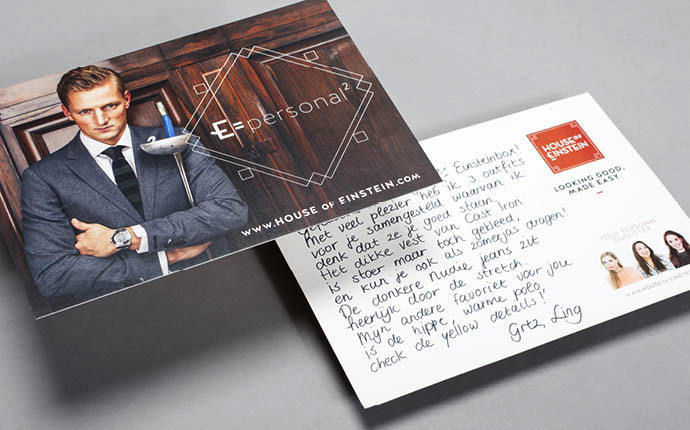 E=personal²
www.HOUSE OF EINSTEIN.COM
Einsteinbox!
Met veel plezier heb ik 3 outfits
voor je samengesteld waarvan ik
denk dat ze je goed staan.
Het dikke vest van Cast Iron
is stoer maar toch gekleed,
en kun je ook als zomerjas dragen!
De donkere nudie jeans zit
heerlijk door de stretch.
Mijn andere favoriet voor jou
is de hippe, warme polo,
check de yellow details!
Grtz, Ling
HOUSE OF
EINSTEIN
LOOKING GOOD,
MADE EASY.
YOUR PERSONAL
OUTFITTER
WWW.HOUSE OF EINSTEIN